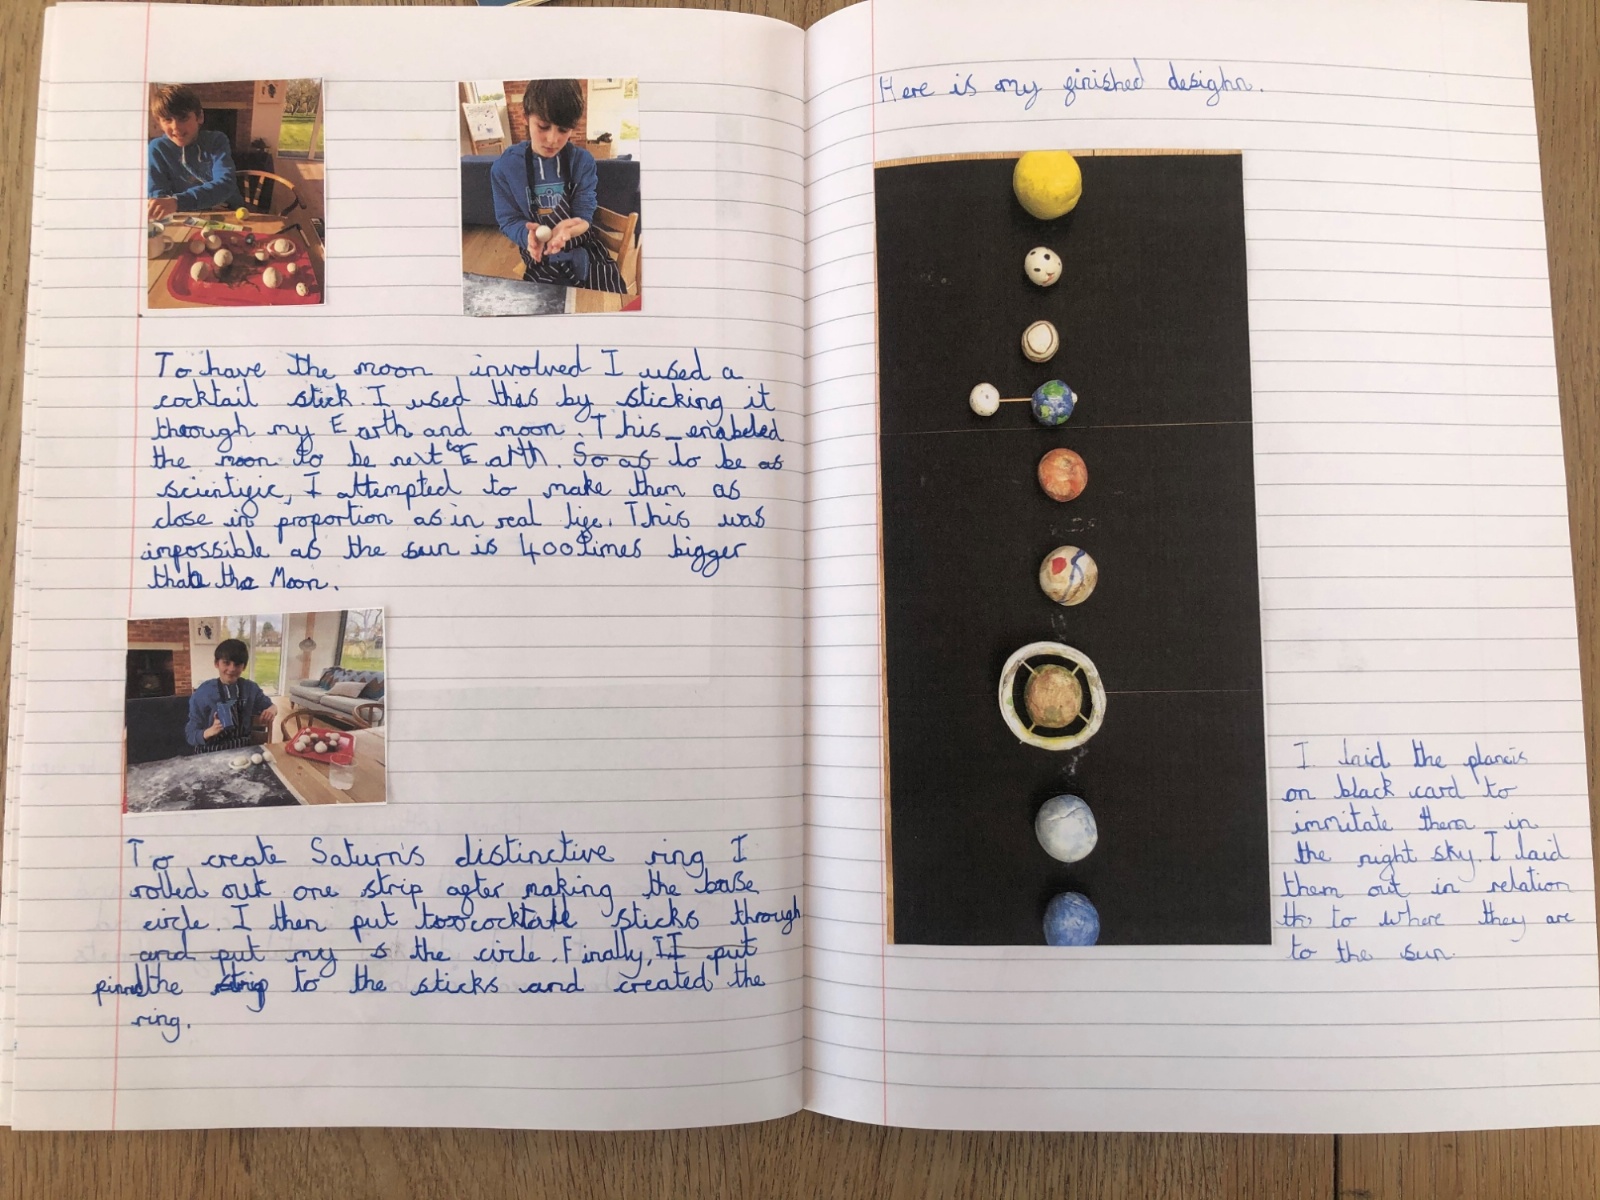 To have the moon involved I used a
cocktail stick. I used this by sticking it
through my Earth and moon. This enabeled
the moon to be next to Earth. So as to be as
scientific, I attempted to make them as
close in proportion as in real life. This was
impossible as the sun is 400 times bigger
than the Moon.
To create Saturn's distinctive ring I
rolled out one strip after making the base
circle. I then put cocktail sticks through
and put my s the circle. Finally, I I put
pinned the strip to the sticks and created the
ring.
Here is my finished desighn.
I laid the planets
on black card to
immitate them in
the night sky. I laid
them out in relation
th to where they are
to the sun.